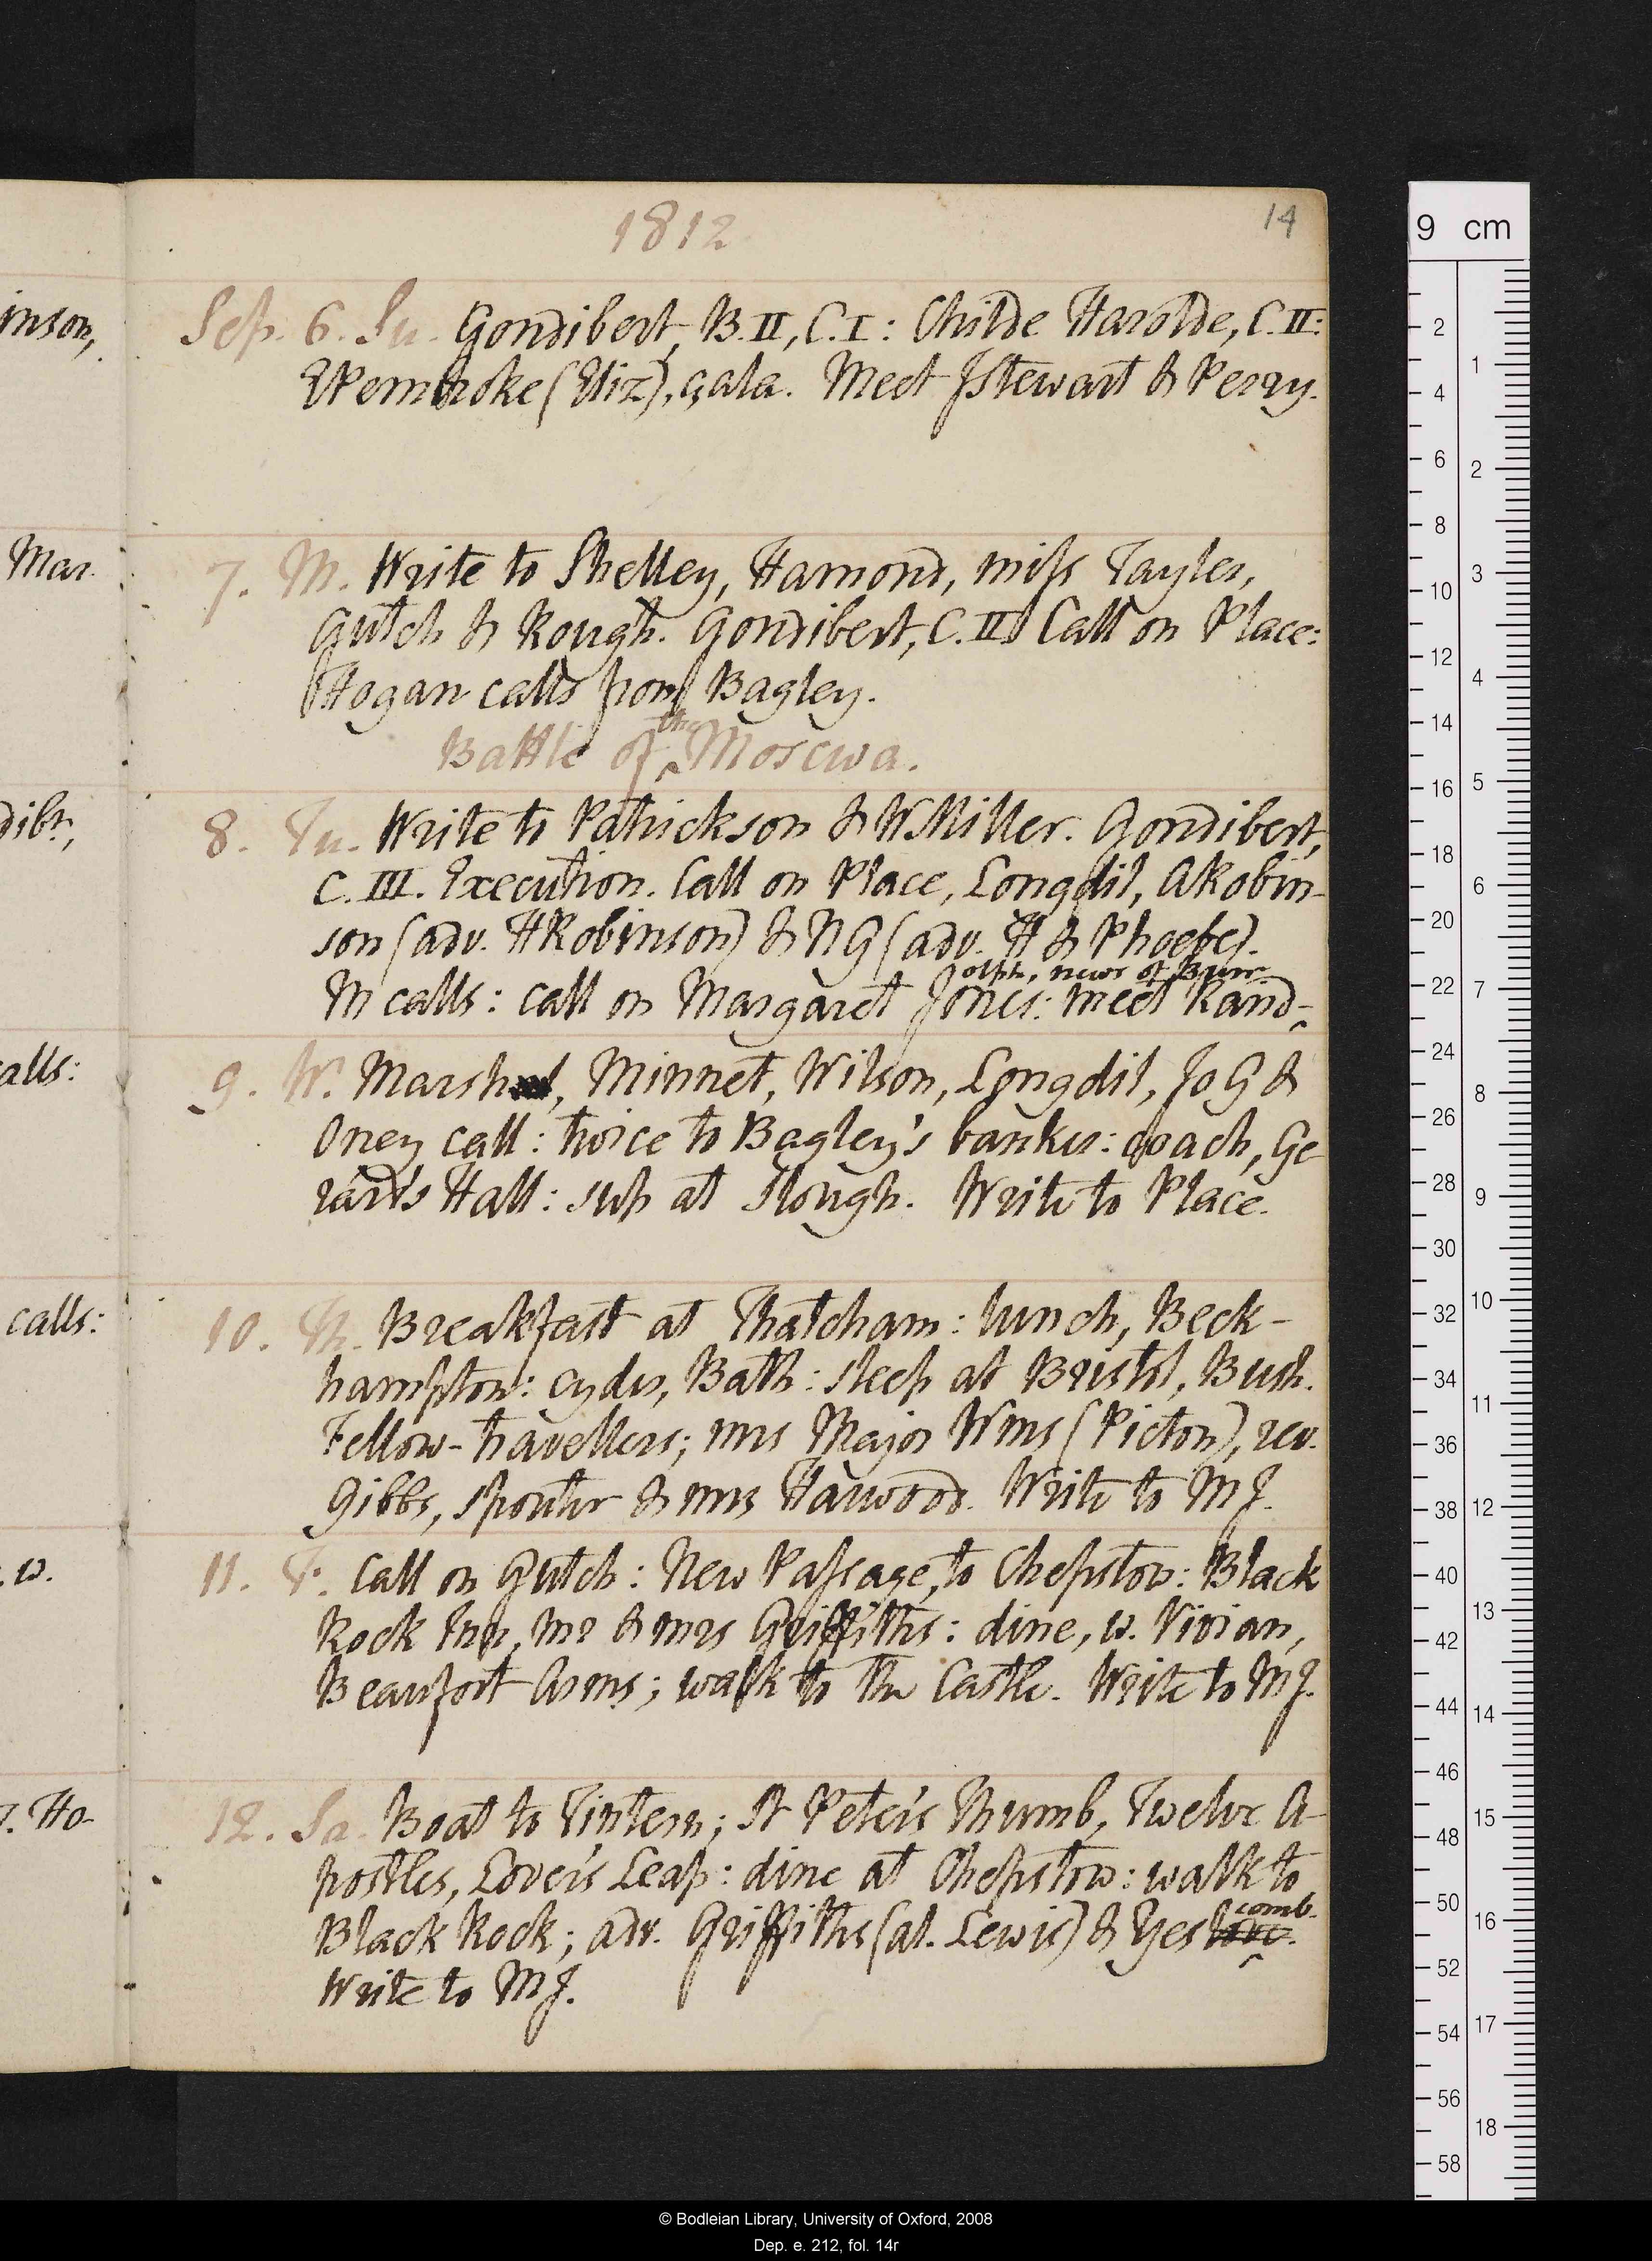 1812
14
inson,
Sep. 6. Su. Gondibert, B. II, C. I: Childe Harolde, C. II:
EPembroke (Eliz), çala. Meet JStewart & Perry.
Mar.
7. M. Write to Shelley, Hamond, miss Tayler,
Gutch & Rough. Gondibert, C. II. Call on Place:
Hogan calls from Bagley.
Battle of the Moscwa.
dibt,
8. Tu. Write to Patrickson & WMiller. Gondibert,
C. III. Execution. Call on Place, Longdil, ARobin-
son (adv. HRobinson) & NG (adv. H & Phoebe).
M calls: call on Margaret Jones: meet Rand-
olph, news of Burr
alls:
9. W. Marshal, Minnet, Wilson, Longdil, Jo G &
Oney call: twice to Bagley's banker: coach, Ge
rard's Hall: sup at Slough. Write to Place.
calls:
10. Th. Breakfast at Thatcham: lunch, Beck-
hampton: cyder, Bath: sleep at Bristol, Bush.
Fellow-travellers; mrs Major Wms (Picton), rev.
Gibbs, spouter & mrs Harwood. Write to MJ.
. w.
11. F. Call on Gutch: New Passage, to Chepstow: Black
Rock Inn, mr & mrs Griffiths: dine, w. Vivian,
Beaufort Arms; walk to the Castle. Write to MJ.
Ho-
12. Sa. Boat to Tintern; St Peter's Thumb, Twelve A-
postles, Lover's Leap: dine at Chepstow: walk to
Black Rock; adv. Griffiths (al. Lewis) & Yescomb.
Write to MJ.
9 cm
2
4
6
8
10
12
14
16
18
20
22
24
26
28
30
32
34
36
38
40
42
44
46
48
50
52
54
56
58
1
2
3
4
5
6
7
8
9
10
11
12
13
14
15
16
17
18
© Bodleian Library, University of Oxford, 2008
Dep. e. 212, fol. 14r